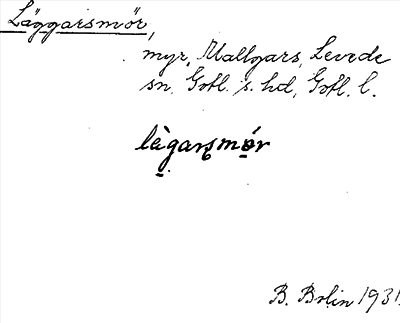 Läggarsmör,
myr, Mallgars, Levede
sn. Gotl. s. hd, Gotl. l.
lègarsmǿr
B. Bolin 1931.